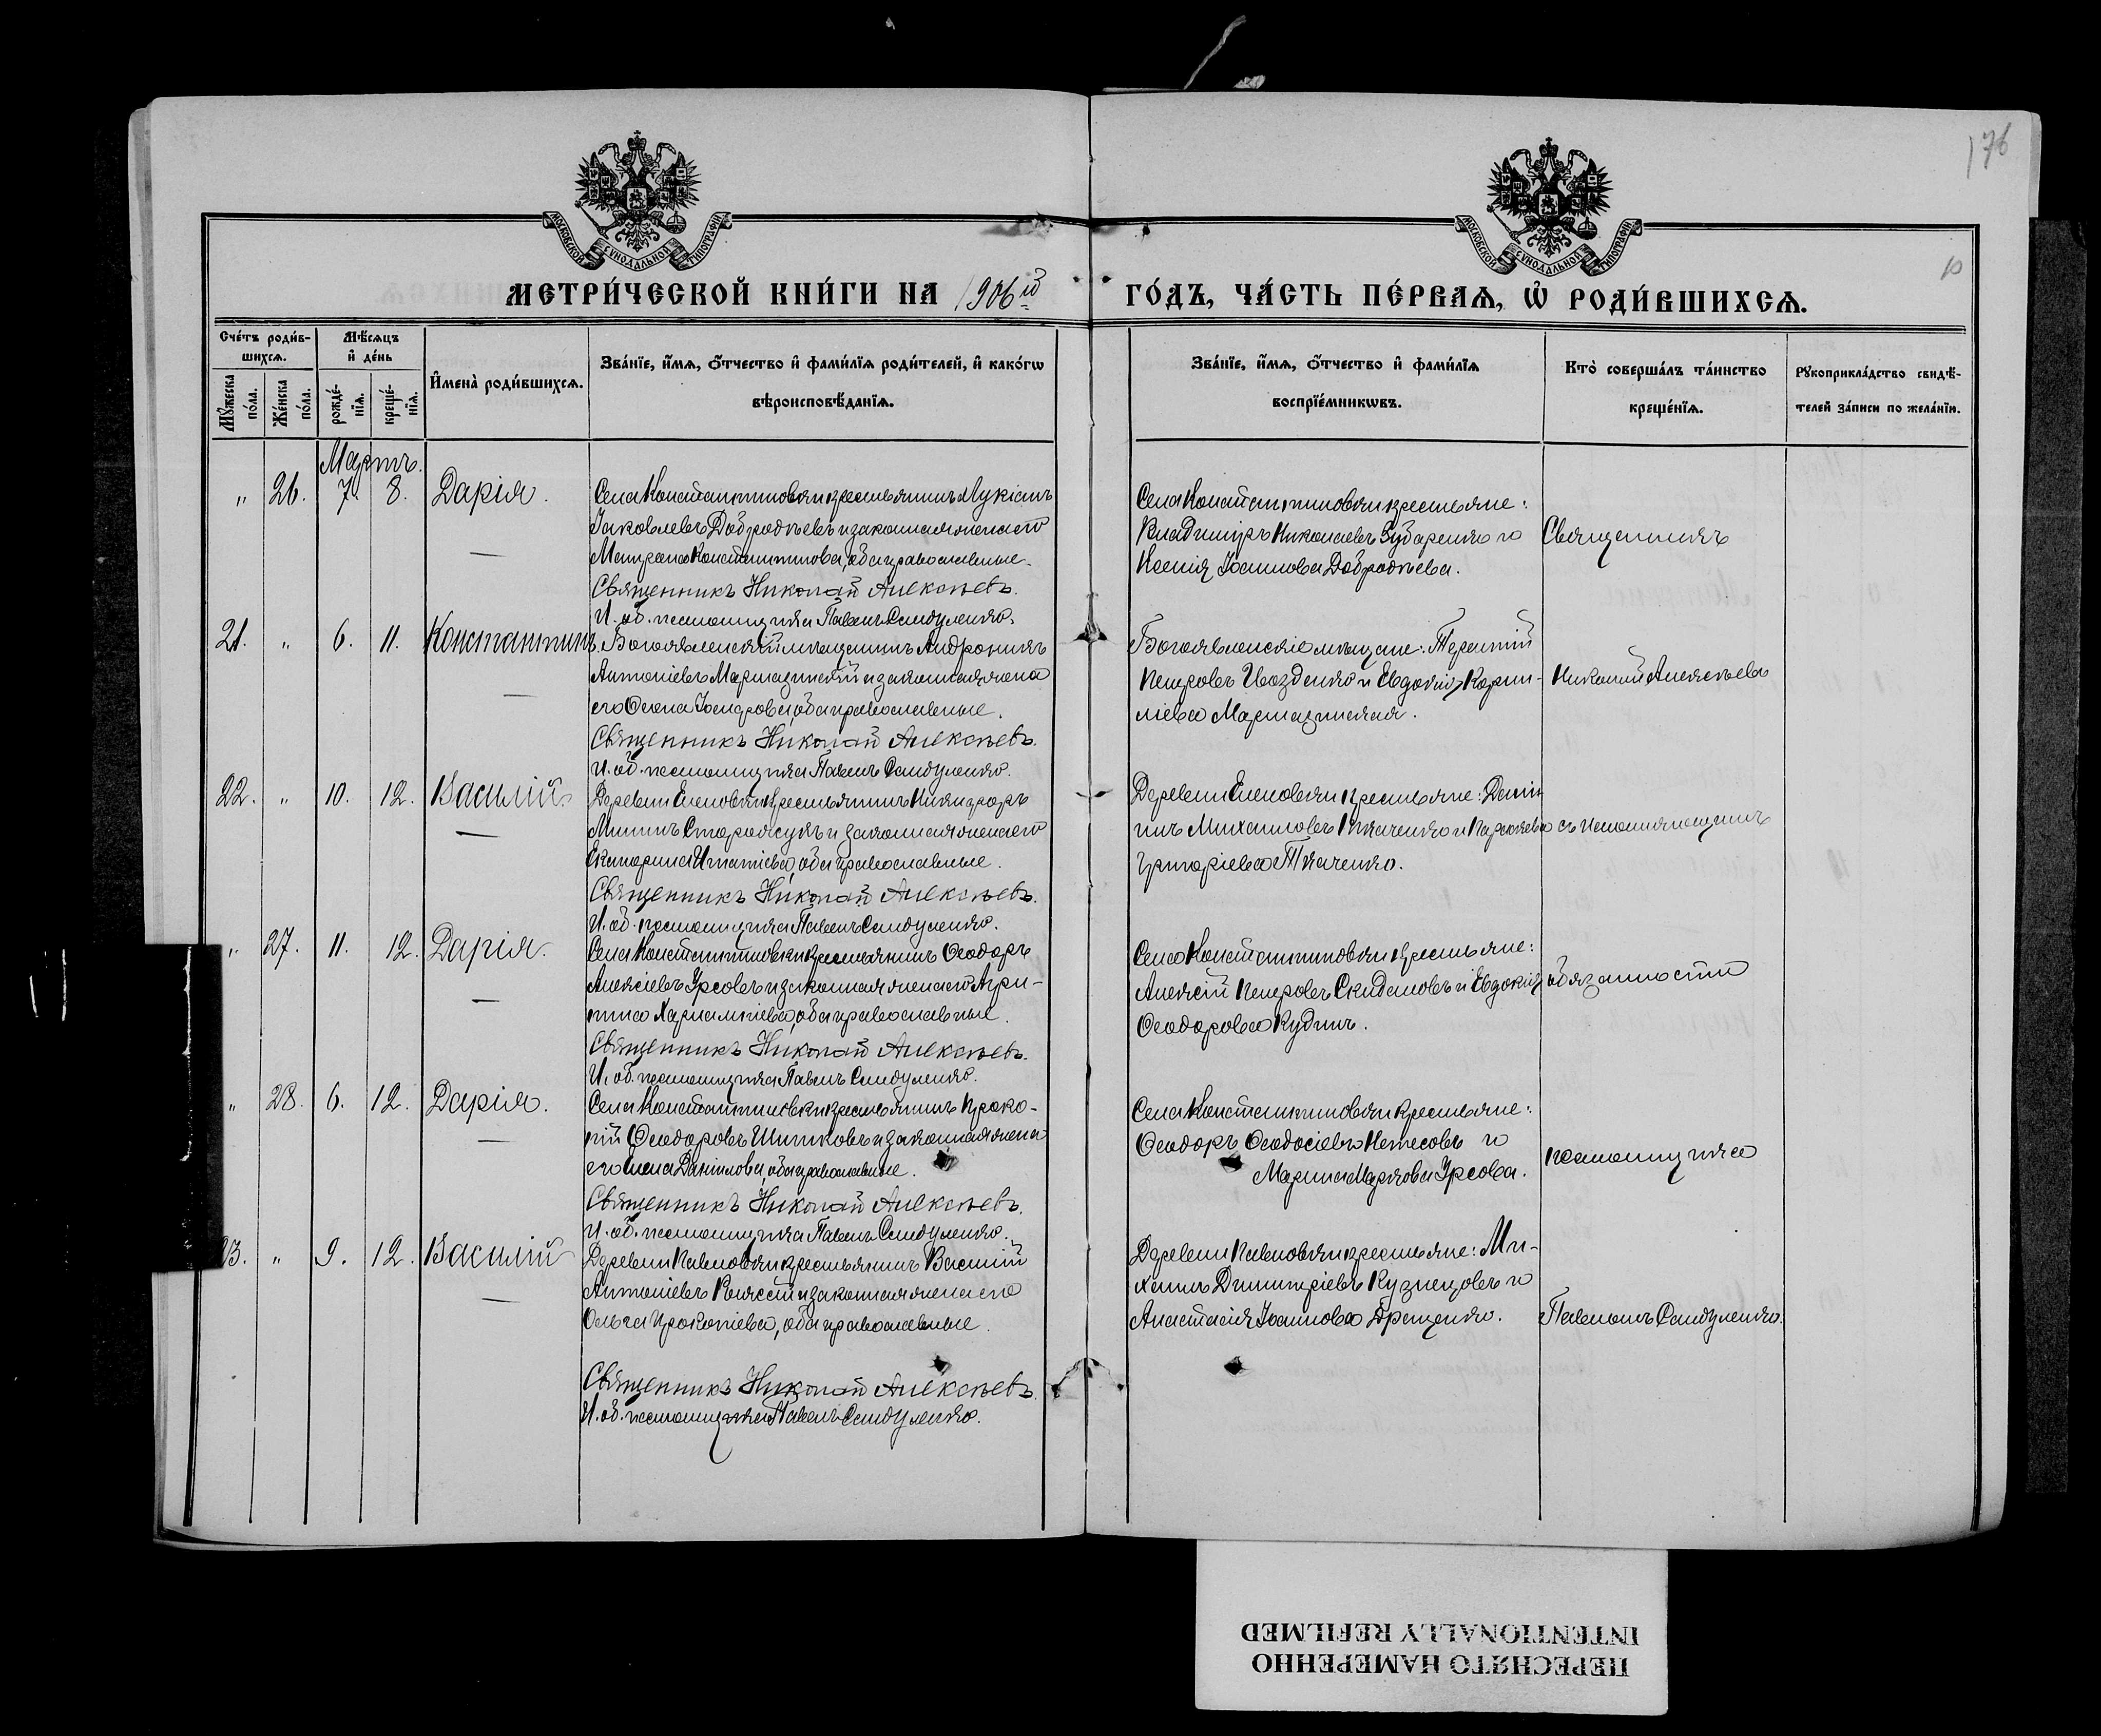 176
10
МОСКОВСКОЙ СѴНОДАЛЬНОЙ ТИПОГРАФІИ
МОСКОВСКОЙ СѴНОДАЛЬНОЙ ТИПОГРАФІИ
МЕТРИ́ЧЕСКОЙ КНИ́ГИ НА 1906й
ГО́ДЪ, ЧА́СТЬ ПЕ́РВАѦ, Ѡ҆ РОДИ́ВШИХСѦ.
Сче́тъ роди́в-
шихсѧ.
Мѣ́сѧцъ
и҆ де́нь
Мꙋ́жеска
по́ла.
Же́нска
по́ла.
рожде́-
нїѧ.
креще́-
нїѧ.
И҆мена̀ роди́вшихсѧ.
Зва́нїе, и҆́мѧ, ѻ҆́тчество и҆ фами́лїѧ роди́телей, и҆ како́гѡ
вѣроисповѣ́данїѧ.
Зва́нїе, и҆́мѧ, ѻ҆́тчество и҆ фами́лїѧ
воспрїе́мникѡвъ.
Кто̀ соверша́лъ та́инство
креще́нїѧ.
Рꙋкоприкла́дство свидѣ́-
телей за́писи по жела́нїю.
Мартъ.
„ 26. 7. 8. Дарія.
Села Константиновки крестьянинъ Лукіанъ
Іаковлевъ Добродѣевъ и законная жена его
Матрона Константинова, оба православные.
Священникъ Николай Алексѣевъ.
И. об. псаломщика Павелъ Сандуленко.
Села Константиновки крестьяне:
Владиміръ Николаевъ Зубаренко и
Ксенія Іоаннова Добродѣева.
Священникъ
21. „ 6. 11. Константинъ.
Богоявленскій мѣщанинъ Андроникъ
Антоніевъ Мартацинскій и законная жена
его Іосифова, оба православные.
Священникъ Николай Алексѣевъ.
И. об. псаломщика Павелъ Сандуленко.
Богоявленскіе мѣщане: Терентій
Петровъ Гвозденко и Евдокія Корни-
ліева Мартацинская.
Николай Алексѣевъ
22. „ 10. 12. Василій
Деревни Еленовки крестьянинъ Никифоръ
Мининъ Староксукъ и законная жена его
Екатерина Игнатіева, оба православные.
Священникъ Николай Алексѣевъ.
И. об. псаломщика Павелъ Сандуленко.
Деревни Еленовки крестьяне: Дани-
илъ Михаиловъ Ткаченко и Параскева
Григоріева Ткаченко.
съ исполняющимъ
„ 27. 11. 12. Дарія.
Села Константиновки крестьянинъ Ѳеодоръ
Алексіевъ Урсовъ и законная жена его Агри-
пина Харлампіева, оба православные.
Священникъ Николай Алексѣевъ.
И. об. псаломщика Павелъ Сандуленко.
Села Константиновки крестьяне:
Алексій Петровъ Скидановъ и Евдокія
Ѳеодорова Кудинъ.
обязанности
„ 28. 6. 12. Дарія.
Села Константиновки крестьянинъ Проко-
пій Ѳеодоровъ Шишковъ и законная жена
его Елена Даніилова, оба православные.
Священникъ Николай Алексѣевъ.
И. об. псаломщика Павелъ Сандуленко.
Села Константиновки крестьяне:
Ѳеодоръ Ѳеодосіевъ Нетесовъ и
Марина Маркова Урсова.
псаломщика
23. „ 9. 12. Василій
Деревни Павловки крестьянинъ Василій
Антоніевъ и законная жена его
Ольга Прокопіева, оба православные.
Священникъ Николай Алексѣевъ.
И. об. псаломщика Павелъ Сандуленко.
Деревни Павловки крестьяне: Ми-
хаилъ Димитріевъ Кузнецовъ и
Анастасія Іоаннова Грещенко.
Павломъ Сандуленко.
ПЕРЕСНЯТО НАМЕРЕННО
INTENTIONALLY REFILMED